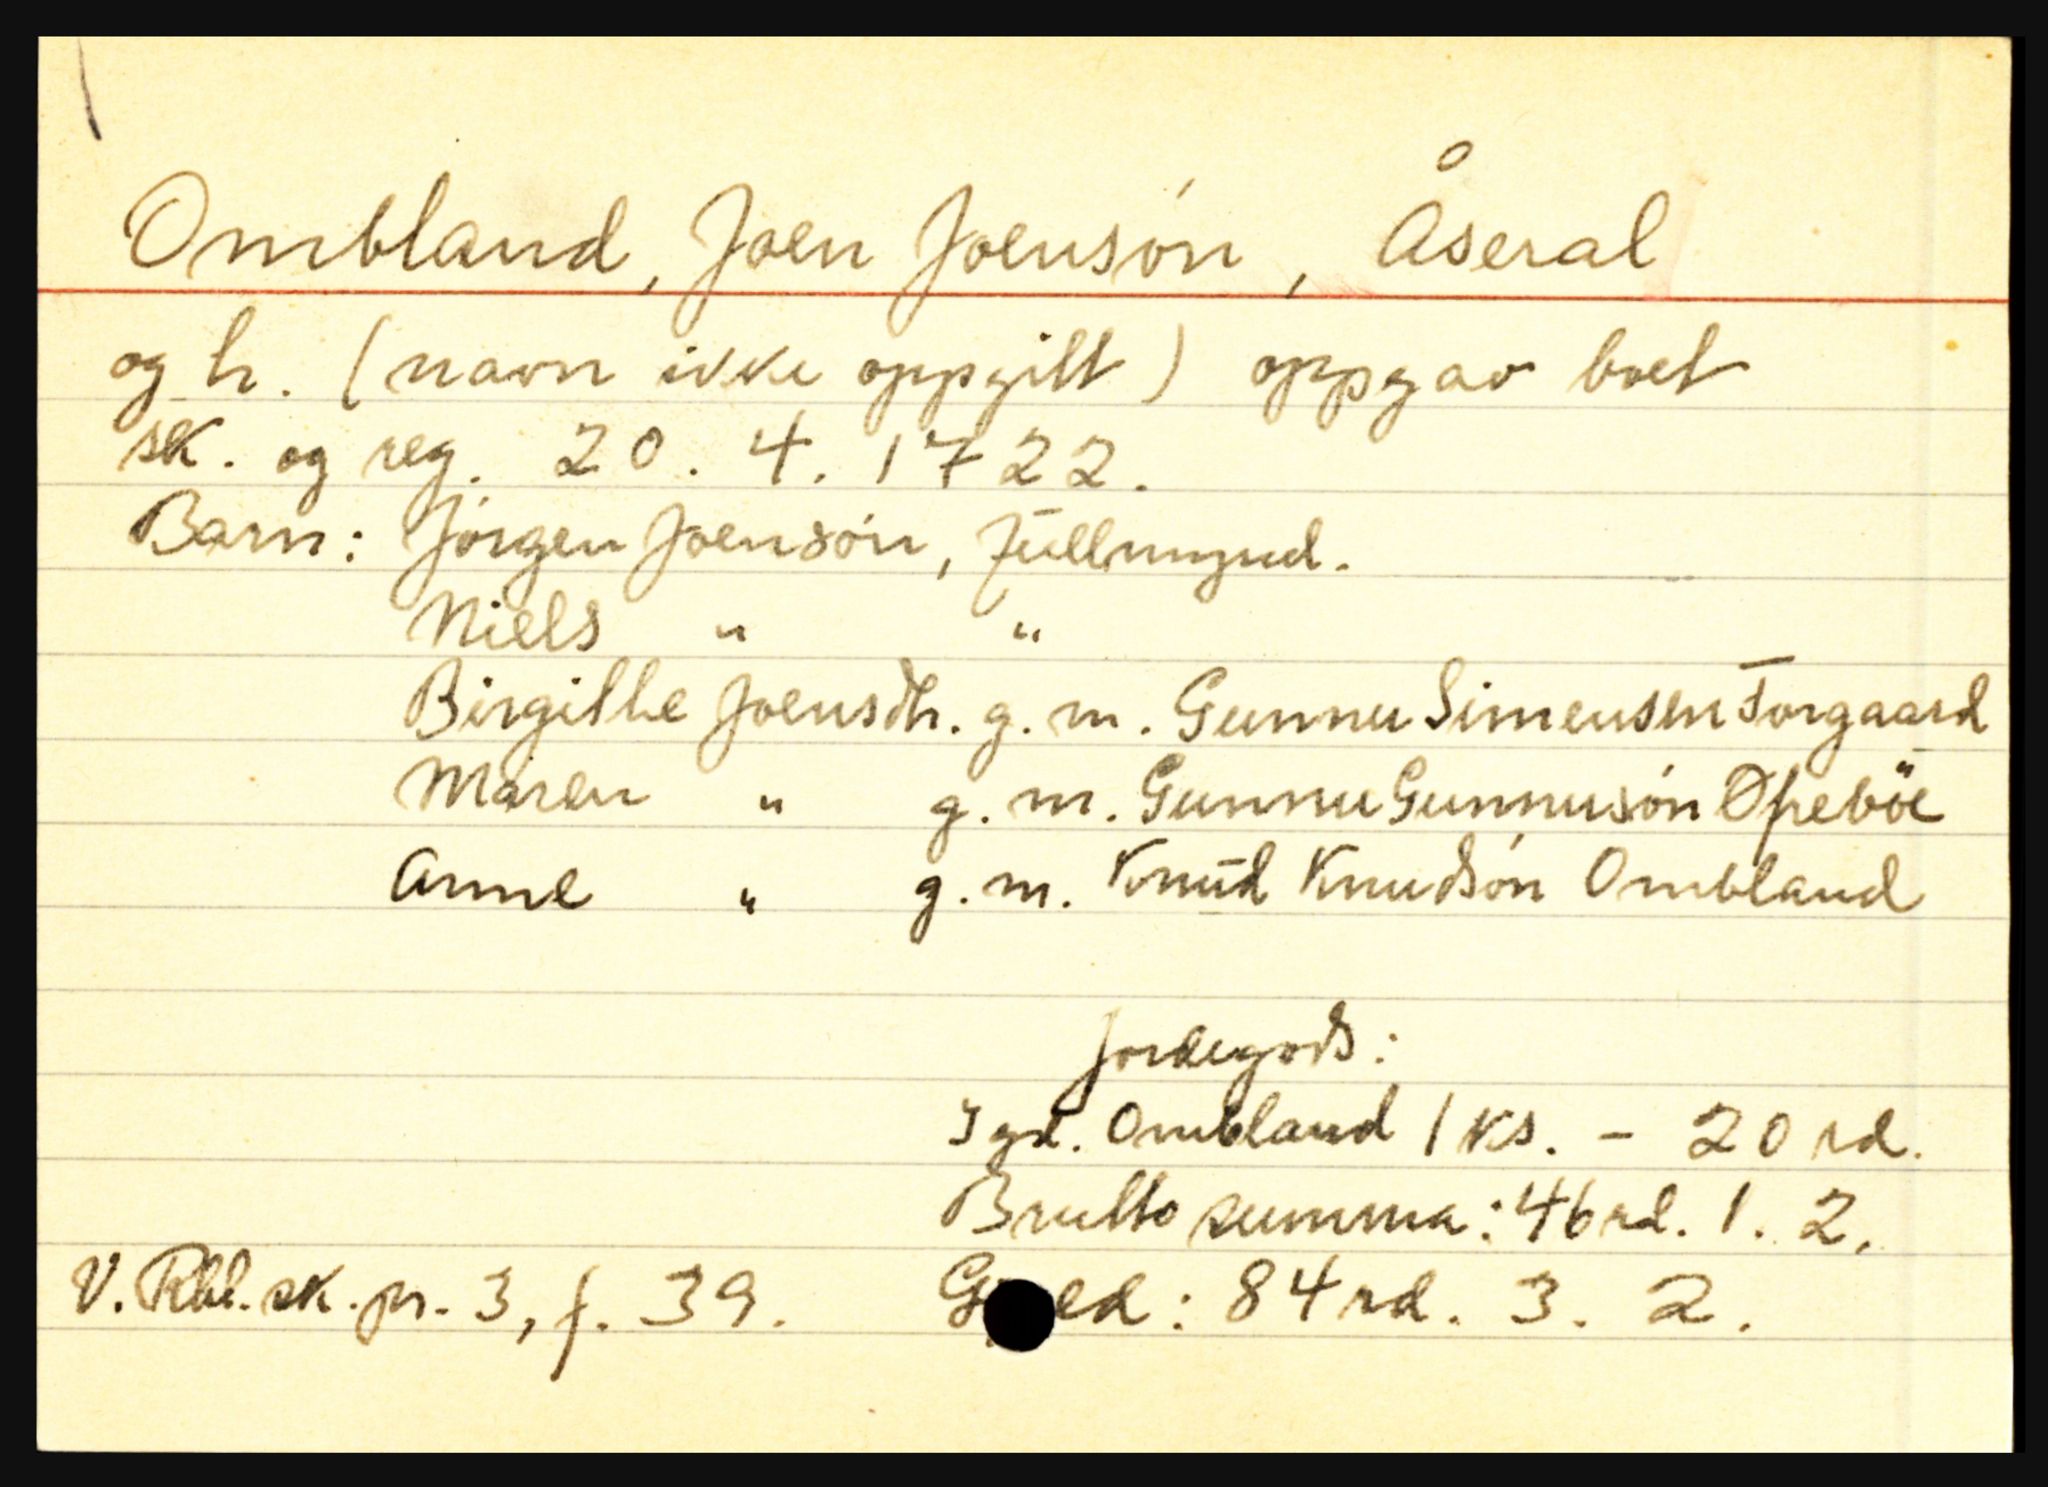 Ombland, Joen Joensón, Åseral
og h. (navn ikke oppgitt) oppgav boet
sk. og reg. 20. 4. 1722.
Barn: Jórgen Joensón, fúllmynd.
Niels " "
Birgitte Joensdtr. g. m. Gunnu Simensen Torgaard
Maren " g. m. Gunnu Gunnusón Opebøe
Anne " g. m. Knúd Knudsón Ombland
Jordegods:
I gd. Ombland 1 ks. - 20 rd.
Brutto summa: 46 rd. 1. 2.
V. Rbl. sk. pr. 3, f. 39. Gjeld: 84 rd. 3. 2.